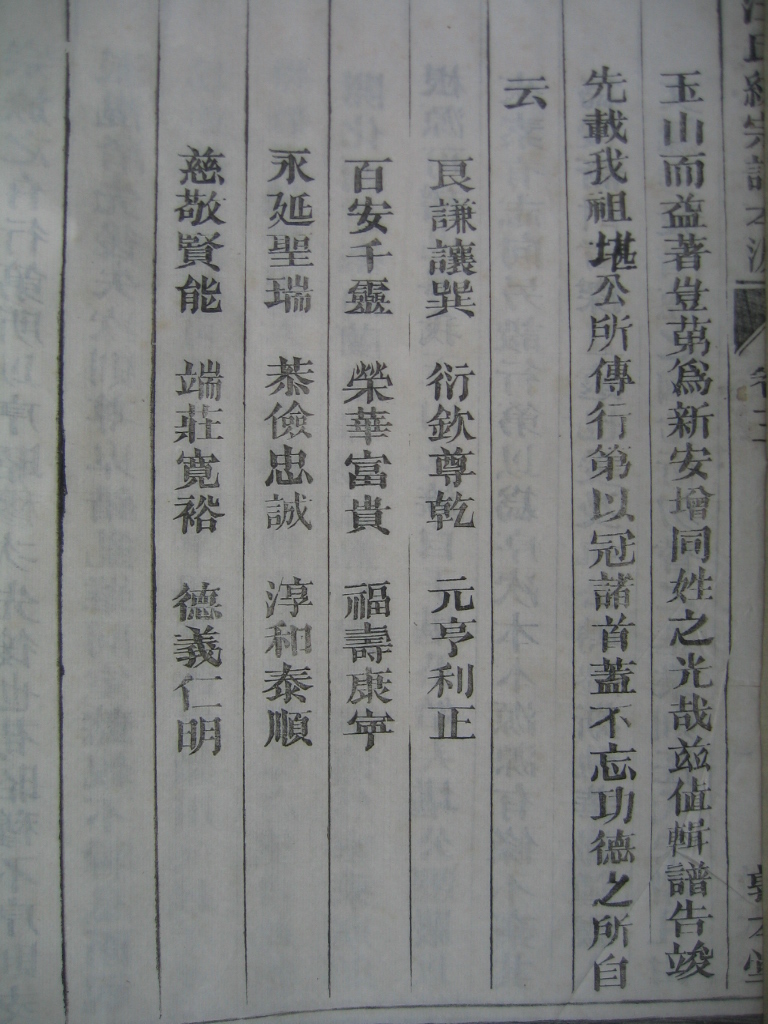 汪氏統宗譜本源 卷二 敦本堂
玉山而益著豈苐爲新安增同姓之光哉兹值輯譜告竣
先載我祖堪公所傳行第以冠諸首蓋不忘功德之所自
云
良謙讓巽 衍欽尊乾 元亨利正
百安千靈 榮華富貴 福壽康寧
永延聖瑞 恭儉忠誠 淳和泰順
慈敬賢能 端莊寬裕 德義仁明